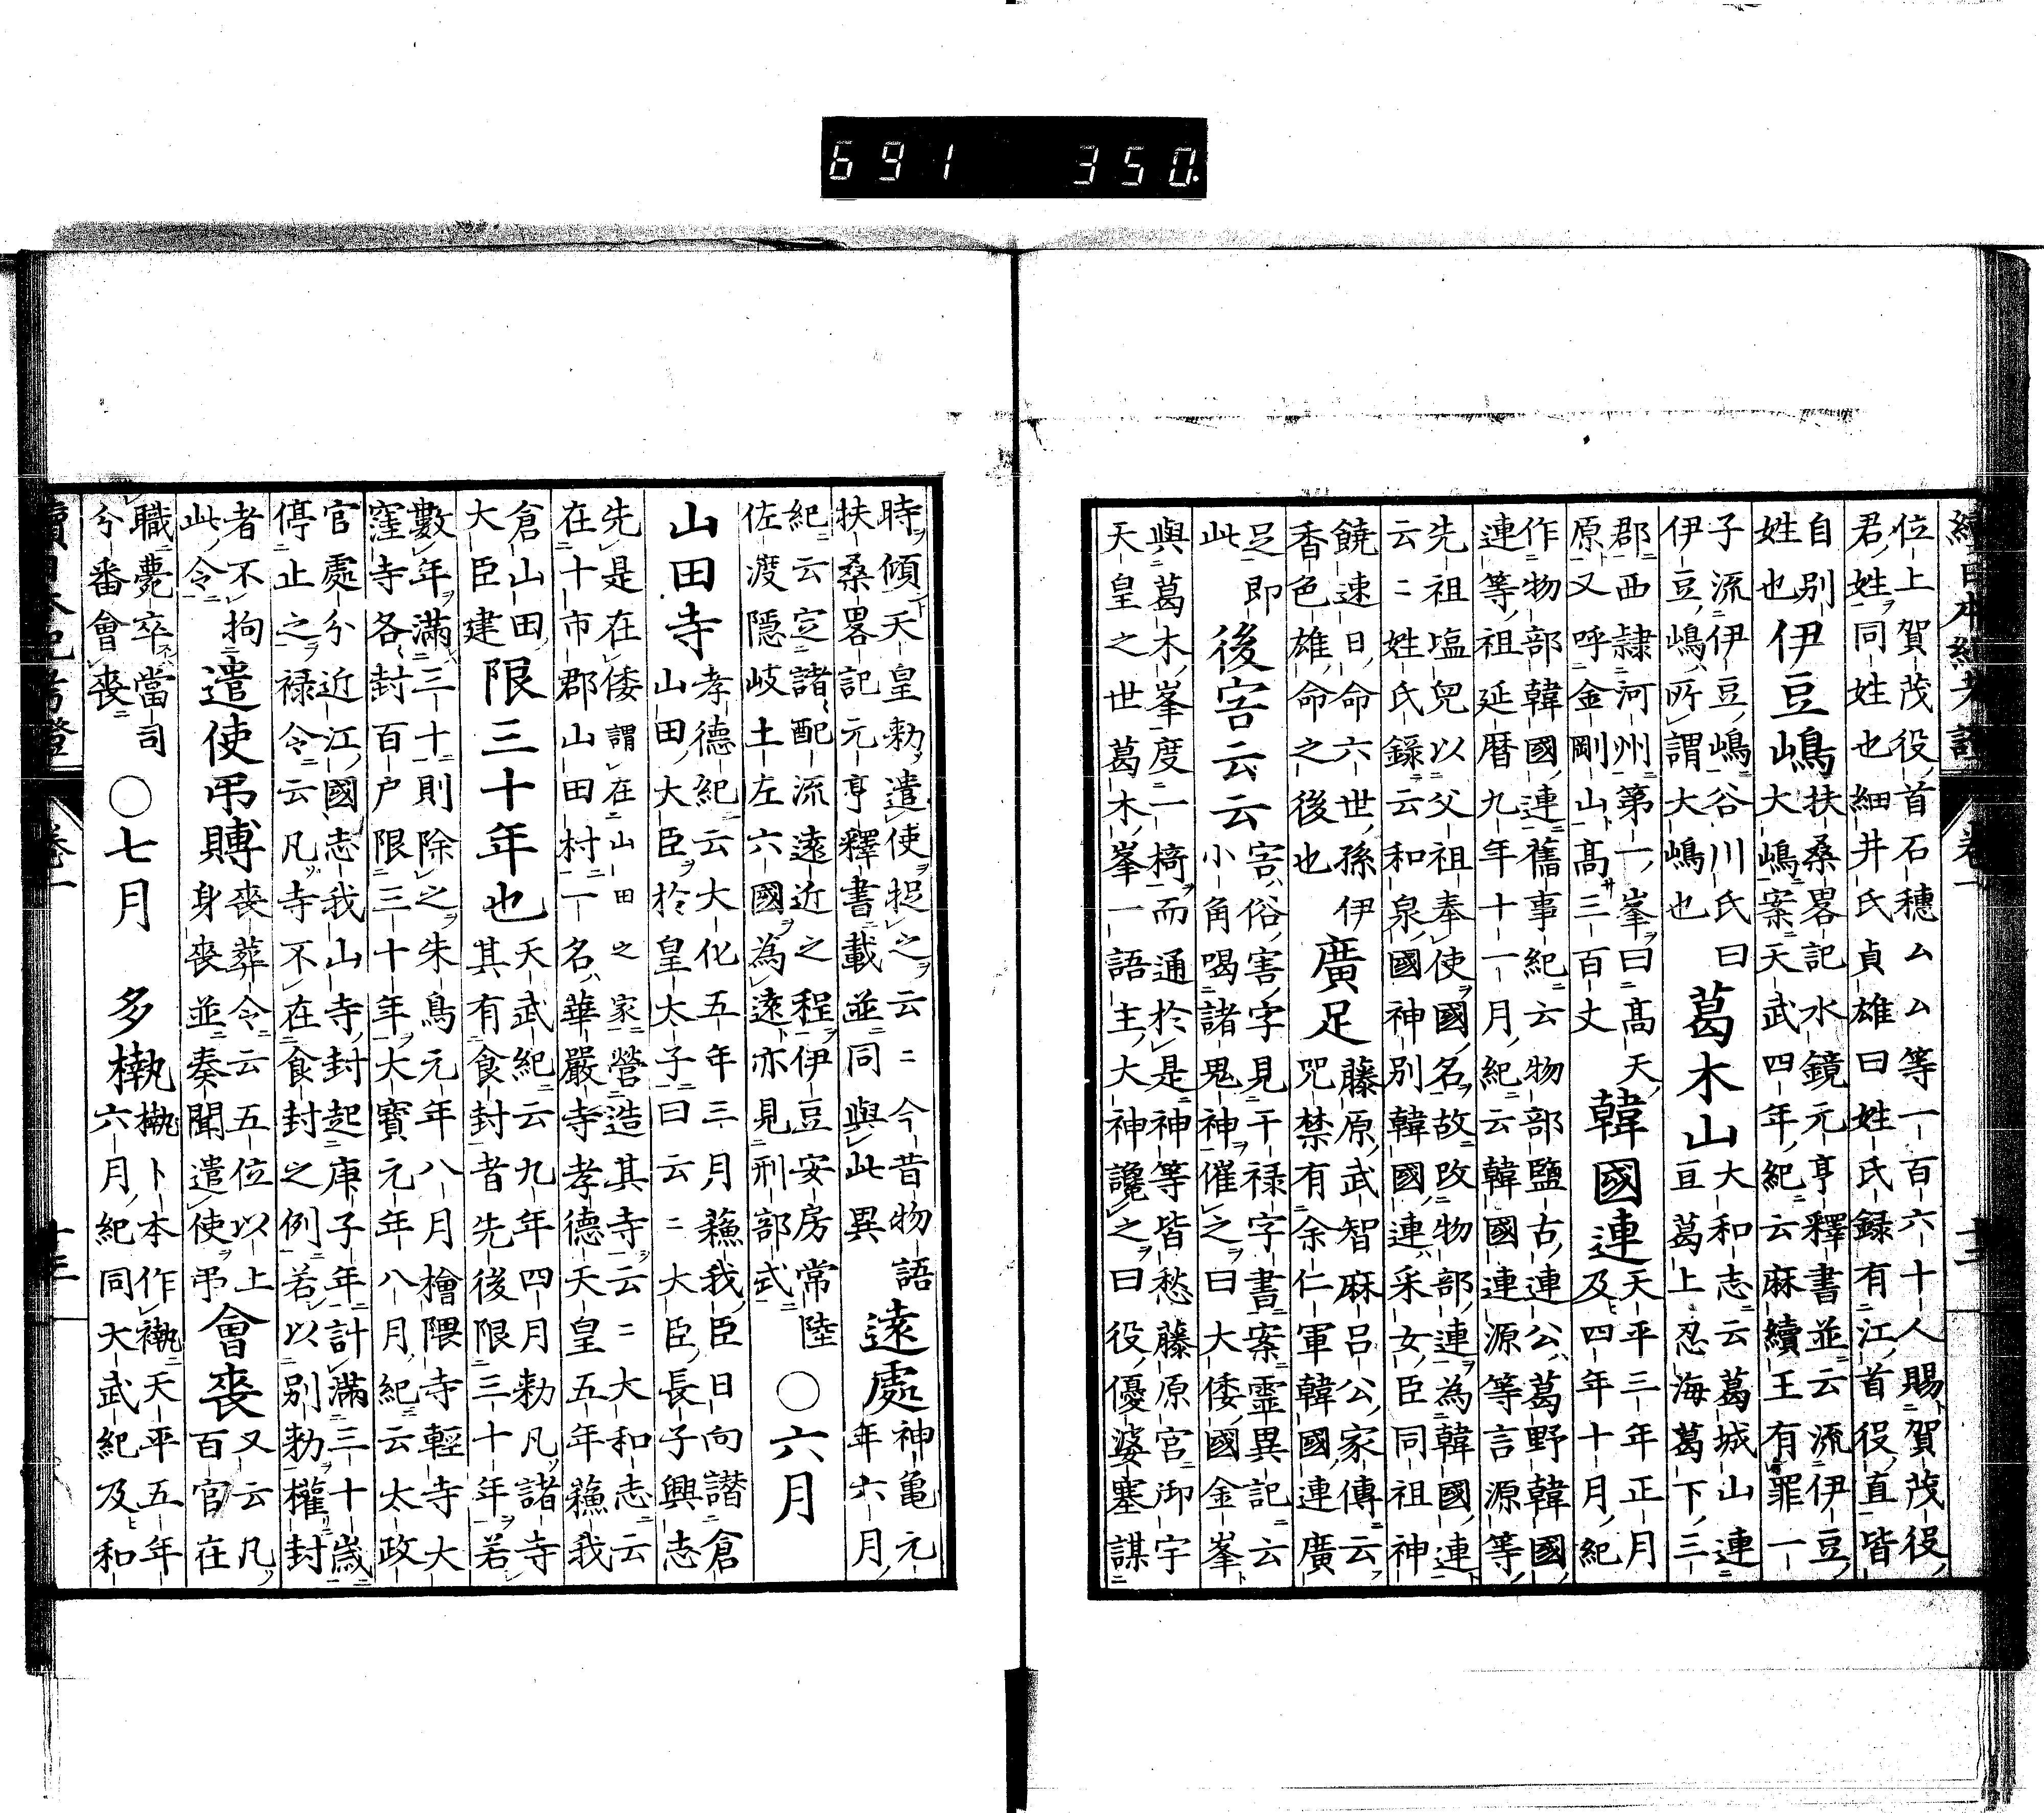 691 350.
位上賀茂役首石穗厶厶等一百六十人賜賀茂役
君姓同姓也細井氏貞雄曰姓氏録有江首役直皆
自別
姓也
伊豆嶋
扶桑畧記水鏡元亨釋書並云流伊豆
大嶋案天武四年紀云麻續王有罪一
子流伊豆嶋谷川氏曰
伊豆嶋所謂大嶋也
葛木山
大和志云葛城山連
亘葛上忍海葛下三
郡西隷河州第一峯曰髙天
原又呼金剛山髙三百丈
韓國連
天平三年正月
及四年十月紀
作物部韓國連舊事紀云物部鹽古連公葛野韓國
連等祖延暦九年十一月紀云韓國連源等言源等
先祖塩兒以父祖奉使國名故改物部連為韓國連
云〻姓氏録云和泉國神別韓國連采女臣同祖神
饒速日命六世孫伊
香色雄命之後也
廣足
藤原武智麻呂公家傳云
咒禁有余仁軍韓國連廣
足即
此
後害云云
害俗害字見干禄字書案靈異記云
小角喝諸鬼神催之曰大倭國金峯
與葛木峯度一椅而通於是神等皆愁藤原宮御宇
天皇之世葛木峯一語主大神讒之曰役優婆塞謀
時傾天皇勅遣使捉之云〻今昔物語
扶桑畧記元亨釋書載並同與此異
遠處
神亀元
年六月
紀云定諸配流遠近之程伊豆安房常陸
佐渡隠岐土左六國為遠亦見刑部式
〇六月
山田寺
孝德紀云大化五年三月蘓我臣日向譛倉
山田大臣於皇太子曰云〻大臣長子興志
先是在倭謂在山田之家營造其寺云〻大和志云
在十市郡山田村一名華嚴寺孝德天皇五年蘓我
倉山田
大臣建
限三十年也
天武紀云九年四月勅凡諸寺
其有食封者先後限三十年若
數年滿三十則除之朱鳥元年八月檜隈寺輕寺大
窪寺各封百户限三十年大寳元年八月紀云太政
官處分近江國志我山寺封起庚子年計滿三十歳
停止之禄令云凡寺不在食封之例若以別勅權封
者不拘
此令
遣使吊賻
喪葬令云五位以上
身喪並奏聞遣使吊
會喪
又云凡
百官在
職薨卒當司
分番會喪
〇七月
多𣝅
𣝅卜本作褹天平五年
六月紀同大武紀及和